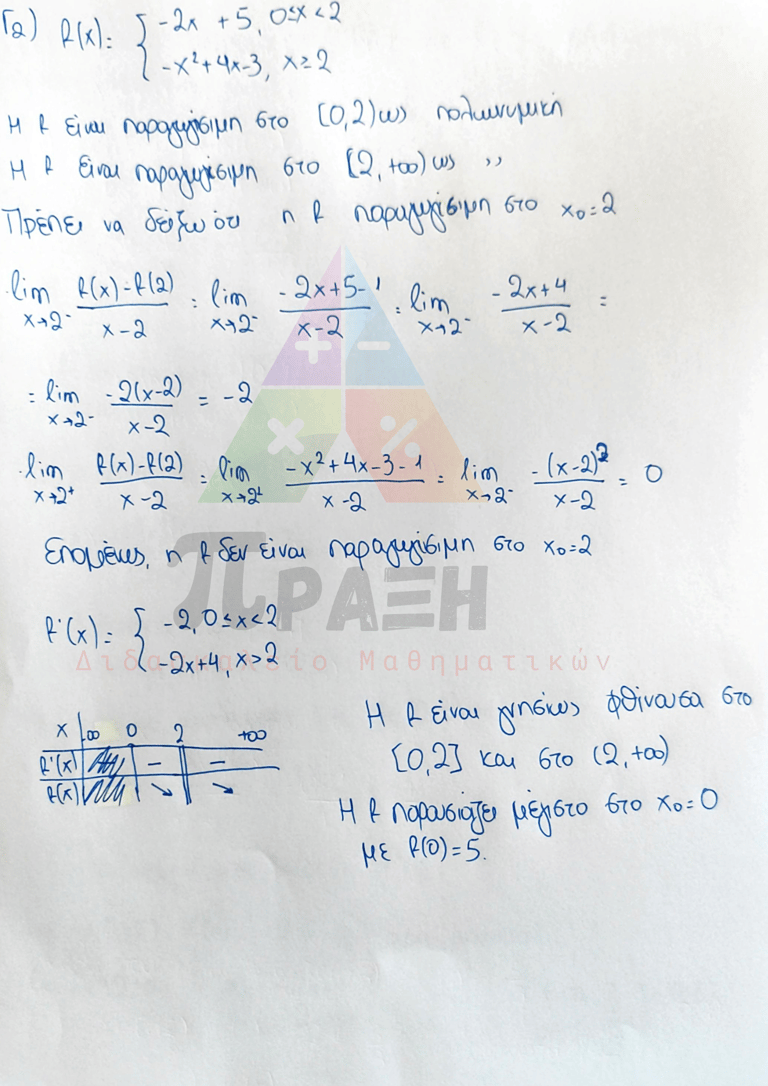 Γ2) f(x)= { -2x + 5, 0≤x<2
-x²+4x-3, x≥2
Η f είναι παραγωγίσιμη στο [0,2) ως πολυωνυμική
Η f είναι παραγωγίσιμη στο [2,+∞) ως ,,
Πρέπει να δείξω ότι η f παραγωγίσιμη στο x₀=2
lim x→2⁻ (f(x)-f(2))/(x-2) = lim x→2⁻ (-2x+5-1)/(x-2) = lim x→2⁻ (-2x+4)/(x-2) =
= lim x→2⁻ (-2(x-2))/(x-2) = -2
lim x→2⁺ (f(x)-f(2))/(x-2) = lim x→2⁺ (-x²+4x-3-1)/(x-2) = lim x→2⁻ (-(x-2)²)/(x-2) = 0
Επομένως, η f δεν είναι παραγωγίσιμη στο x₀=2
ΠΡΑΞΗ
f'(x)= { -2, 0≤x<2
-2x+4, x>2
Διδασκαλείο Μαθηματικών
x -∞ 0 2 +∞
f'(x) - -
f(x) ↘ ↘
Η f είναι γνησίως φθίνουσα στο
[0,2] και στο (2,+∞)
Η f παρουσιάζει μέγιστο στο x₀=0
με f(0)=5.